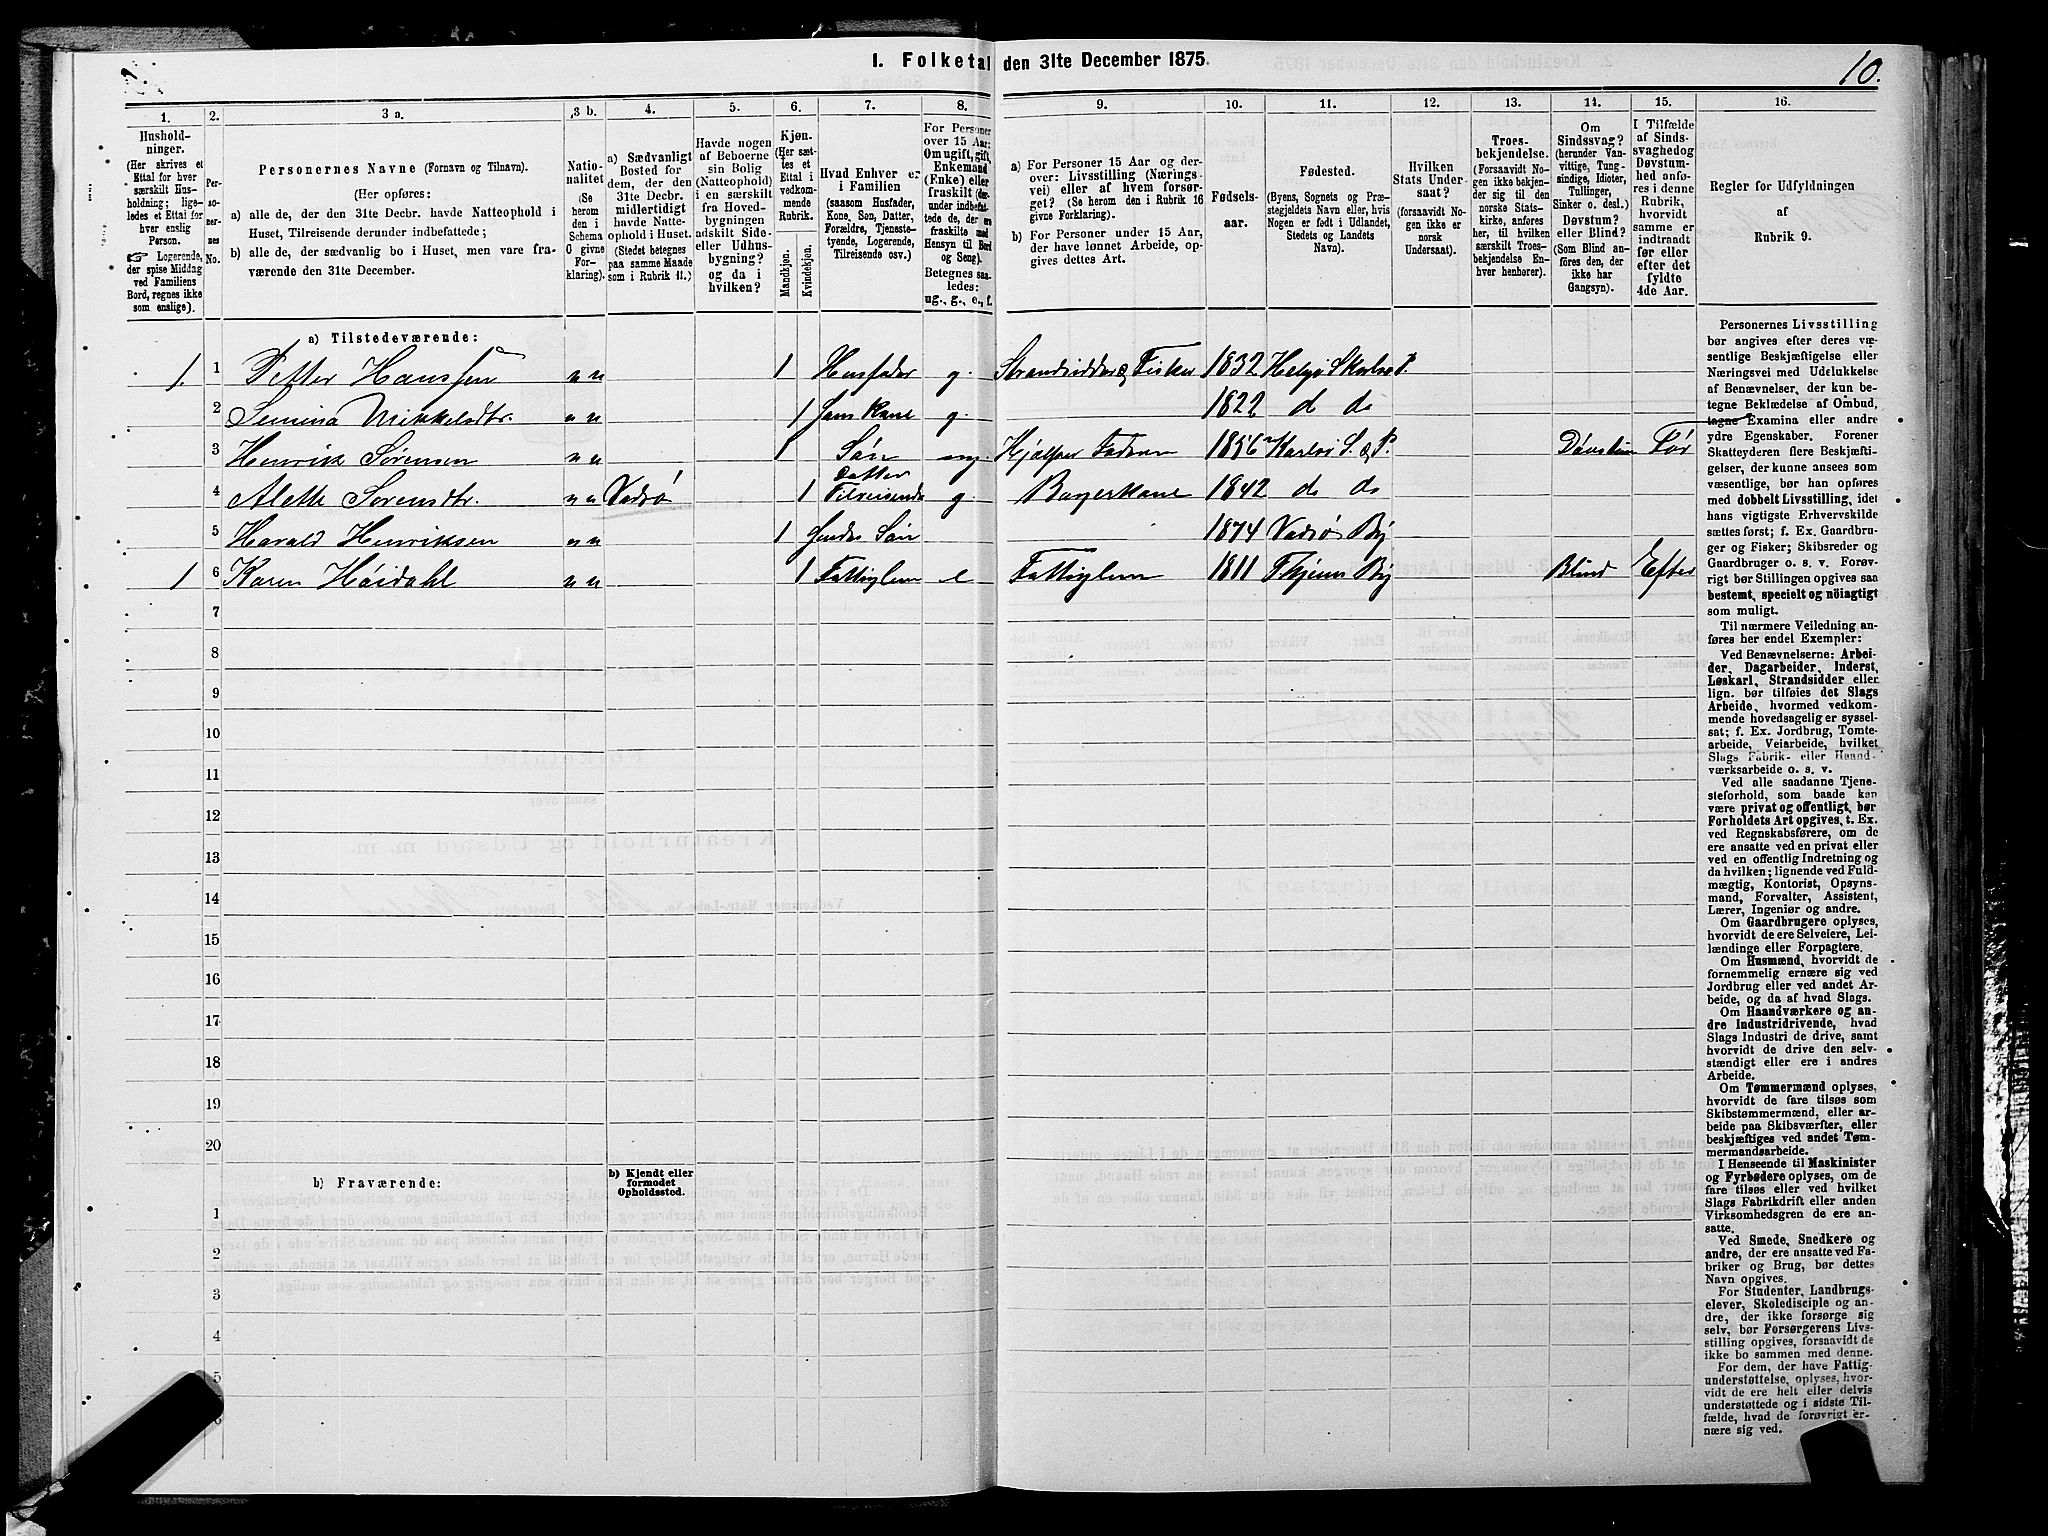 1. Folketal den 31te December 1875.
10.
1. 2. 3 a. 3 b. 4. 5. 6. 7. 8. 9. 10. 11. 12. 13. 14. 15. 16.
Hushold-
ninger.
(Her skrives et
Ettal for hver
særskilt Hus-
holdning; lige-
ledes et Ettal for
hver enslig
Person.
☞ Logerende,
der spise Middag
ved Familiens
Bord, regnes ikke
som enslige).
Per-
so-
ner-
nes
No.
Personernes Navne (Fornavn og Tilnavn).
(Her opføres:
a) alle de, der den 31te Decbr. havde Natteophold i
Huset, Tilreisende derunder indbefattede;
b) alle de, der sædvanlig bo i Huset, men vare fra-
værende den 31te December.
Natio-
nalitet
(Se
herom
den i
Schema
O givne
For-
klaring).
a) Sædvanligt
Bosted for
dem, der den
31te Decbr.
midlertidigt
havde Natte-
ophold i Huset.
(Stedet betegnes
paa samme Maade
som i Rubrik 11.)
Havde nogen
af Beboerne
sin Bolig
(Natteophold)
i en særskilt
fra Hoved-
bygningen
adskilt Side-
eller Udhus-
bygning?
og da i
hvilken?
Kjøn.
(Her sæt-
tes et
Ettal i
vedkom-
mende
Rubrik.
Mandkjøn.
Kvindekjøn.
Hvad Enhver er
i Familien
(saasom Husfader,
Kone, Søn, Datter,
Forældre, Tjeneste-
tyende, Logerende,
Tilreisende osv.)
For Personer
over 15 Aar:
Om ugift, gift,
Enkemand
(Enke) eller
fraskilt (der-
under indbefat-
tede de, der ere
fraskilte med
Hensyn til Bord
og Seng).
Betegnes saa-
ledes:
ug., g., e., f.
a) For Personer 15 Aar og der-
over: Livsstilling (Nærings-
vei) eller af hvem forsør-
get? (Se herom den i Rubrik 16
givne Forklaring).
b) For Personer under 15 Aar,
der have lønnet Arbeide, op-
gives dettes Art.
Fødsels-
aar.
Fødested.
(Byens, Sognets og Præ-
stegjeldets Navn eller, hvis
Nogen er født i Udlandet,
Stedets og Landets
Navn).
Hvilken
Stats Under-
saat?
(forsaavidt No-
gen ikke er
norsk
Undersaat).
Troes-
bekjendelse.
(Forsaavidt No-
gen ikke bekjen-
der sig til den
norske Stats-
kirke, anføres
her, til hvilken
særskilt Troes-
bekjendelse En-
hver henhører).
Om
Sindssvag?
(herunder Van-
vittige, Tung-
sindige, Idioter,
Tullinger,
Sinker o. desl.)
Døvstum?
eller Blind?
(Som Blind an-
føres den, der
ikke har
Gangsyn).
I Tilfælde
af Sinds-
svaghed og
Døvstum-
hed anfø-
res i denne
Rubrik,
hvorvidt
samme er
indtraadt
før eller
efter det
fyldte
4de Aar.
Regler for Udfyldningen
af
Rubrik 9.
a) Tilstedeværende:
1. 1 Petter Hanssen n n 1 Husfader g. Strandsidder & Fisker 1832 Helgø Skarlsø P.
2 Semina Mikkelsdtr. n n 1 hans Kone g. 1822 d do
3 Henrik Sørensen n n 1 Søn ug. Hjælper Faderen 1856 Karlsø S. & P. Døvstum Før
4 Alette Sørensdtr. n n Vadsø 1 Datter Tilreisende g. Bagerkone 1842 do do
5 Harald Henriksen n n 1 hendes Søn 1874 Vadsø By
1 6 Karen Høidahl n n 1 Fattiglem e Fattiglem 1811 Thjems By Blind Efter
7
8
9
10
11
12
13
14
15
16
17
18
19
20
b) Fraværende:
b) Kjendt eller
formodet
Opholdssted.
1
2
3
4
5
6
Personernes Livsstilling
bør angives efter deres væ-
sentlige Beskjæftigelse eller
Næringsvei med Udelukkelse
af Benævnelser, der kun be-
tegne Beklædelse af Ombud,
tagne Examina eller andre
ydre Egenskaber. Forener
Skatteyderen flere Beskjæfti-
gelser, der kunne ansees som
væsentlige, bør han opføres
med dobbelt Livsstilling, idet
hans vigtigste Erhvervskilde
sættes først; f. Ex. Gaardbru-
ger og Fisker; Skibsreder og
Gaardbruger o. s. v. Forøv-
rigt bør Stillingen opgives saa
bestemt, specielt og nöiagtigt
som muligt.
Til nærmere Veiledning an-
føres her endel Exempler:
Ved Benævnelserne: Arbei-
der, Dagarbeider, Inderst,
Løskarl, Strandsidder eller
lign. bør tilføies det Slags
Arbeide, hvormed vedkom-
mende hovedsagelig er syssel-
sat; f. Ex. Jordbrug, Tomte-
arbeide, Veiarbeide, hvilket
Slags Fabrik- eller Haand-
værksarbeide o. s. v.
Ved alle saadanne Tjene-
steforhold, som baade kan
være privat og offentligt, bør
Forholdets Art opgives, t. Ex.
ved Regnskabsførere, om de
ere ansatte ved en privat eller
ved en offentlig Indretning og
da hvilken; lignende ved Fuld-
mægtig, Kontorist, Opsyns-
mand, Forvalter, Assistent,
Lærer, Ingeniør og andre.
Om Gaardbrugere oplyses,
hvorvidt de ere Selveiere, Lei-
lændinge eller Forpagtere.
Om Husmænd, hvorvidt de
fornemmelig ernære sig ved
Jordbrug eller ved andet Ar-
beide, og da af hvad Slags.
Om Haandværkere og an-
dre Industridrivende, hvad
Slags Industri de drive, samt
hvorvidt de drive den selv-
stændigt eller ere i andres
Arbeide.
Om Tømmermænd oplyses,
hvorvidt de fare tilsøs som
Skibstømmermænd, eller ar-
beide paa Skibsværfter, eller
beskjæftiges ved andet Tøm-
mermandsarbeide.
I Henseende til Maskinister
og Fyrbødere oplyses, om de
fare tilsøs eller ved hvilket
Slags Fabrikdrift eller anden
Virksomhedsgren de ere an-
satte.
Ved Smede, Snedkere og
andre, der ere ansatte ved Fa-
briker og Brug, bør dettes
Navn opgives.
For Studenter, Landbrugs-
elever, Skoledisciple og an-
dre, der ikke forsørge sig
selv, bør Forsørgerens Livs-
stilling opgives, forsaavidt de
ikke bo sammen med denne.
For dem, der have Fattig-
understøttelse, oplyses, hvor-
vidt de ere helt eller delvis
understøttede og i sidste Til-
fælde, hvad de forøvrigt er-
nære sig ved.